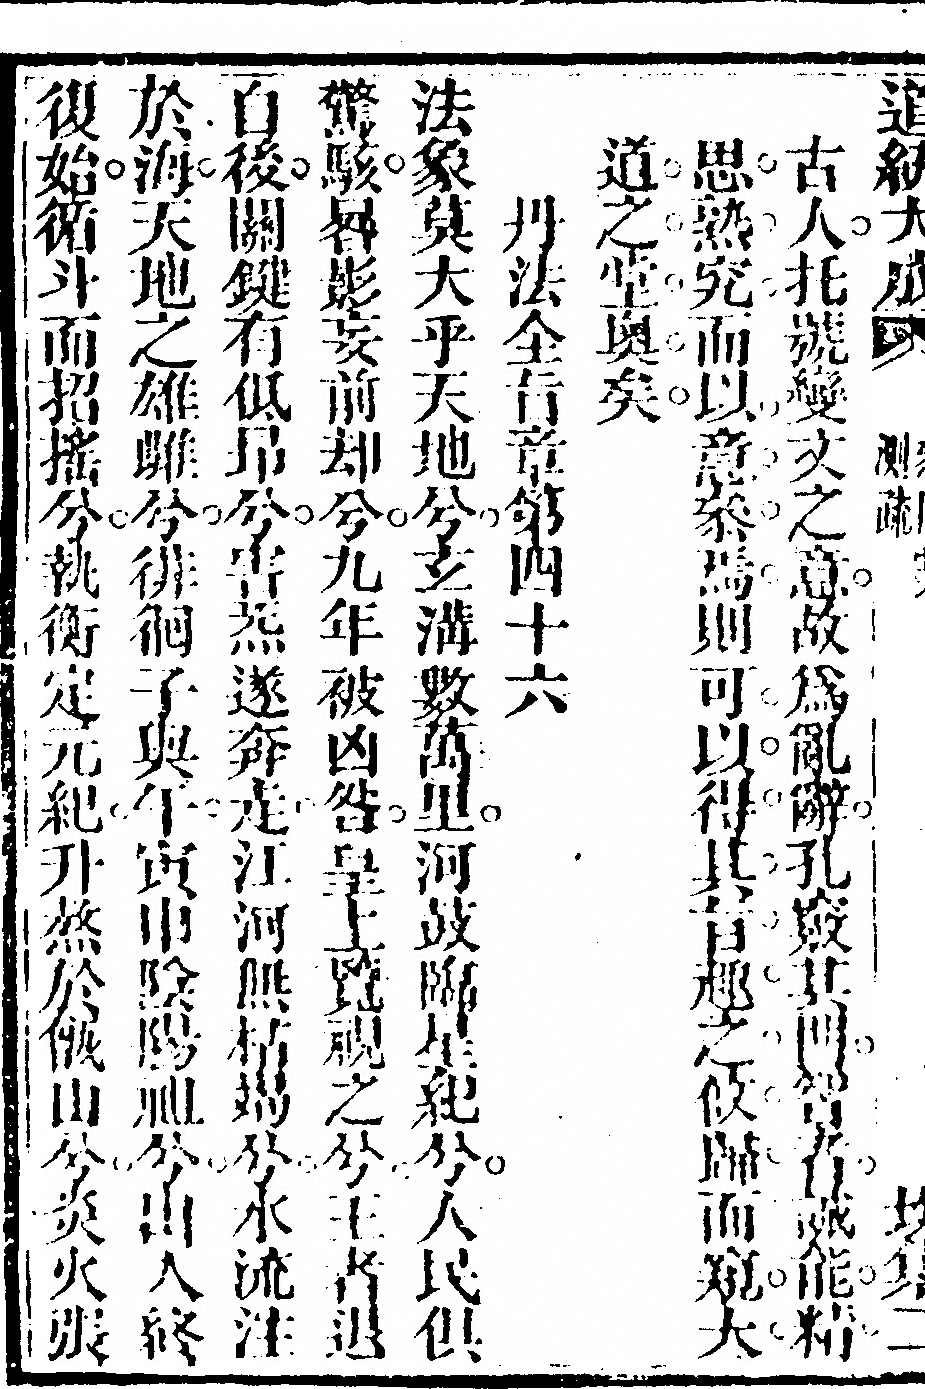 道統大成
測疏
集二
古人托號變文之意故爲亂辭孔竅其門智者誠能精
思熟究而以意叅焉則可以得其旨趣之攸歸而窺大
道之堂奧矣
丹法全旨章第四十六
法象莫大乎天地兮玄溝數萬里河鼓臨星紀兮人民俱
驚駭晷影妄前却兮九年被凶咎皇上覽視之兮王者退
自後關鍵有低昂兮害炁遂奔走江河無枯竭兮水流注
於海天地之雄雌兮徘徊子與午寅申陰陽祖兮出入終
復始循斗而招搖兮執衡定元紀升熬於甑山兮炎火張